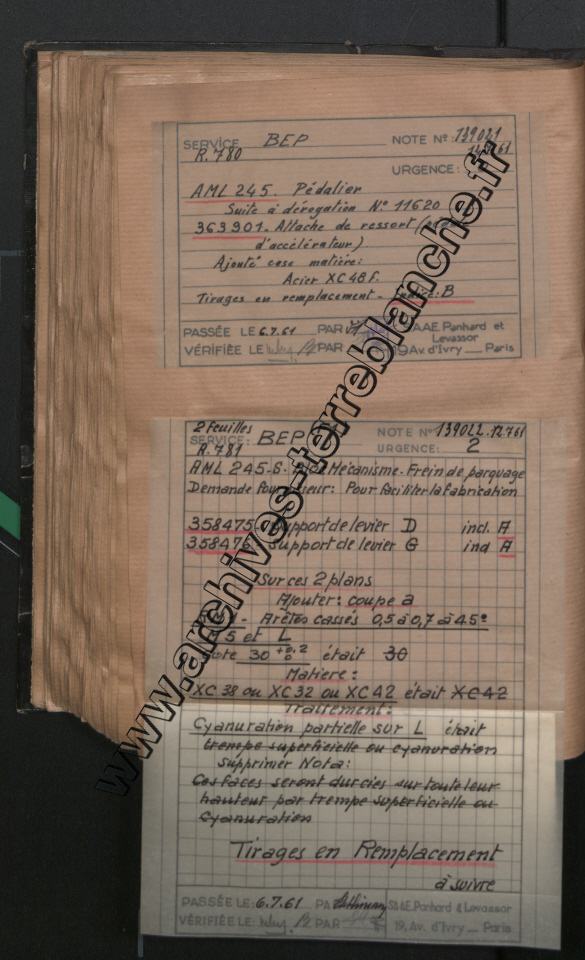 SERVICE BEP NOTE Nº: 139021
R.780
URGENCE:
AML 245. Pédalier
Suite à dérogation Nº 11620
363901. Attache de ressort
d'accélérateur)
Ajouté case matière:
Acier XC 48 f.
Tirages en remplacement - : B
PASSÉE LE 6.7.61 PAR S.A.A.E. Panhard et
Levassor
VÉRIFIÉE LE PAR 19 Av. d'Ivry __ Paris
2 Feuilles
SERVICE: BEP NOTE Nº 139022.12.7.61
R.781 URGENCE: 2
AML 245. Mécanisme. Frein de parquage
Demande fournisseur: Pour faciliter la fabrication
358475. Support de levier D ind. A
358476. Support de levier G ind A
Sur ces 2 plans
Ajouter: coupe a
Arêtes cassés 0,5 à 0,7 à 45º
5 et L
30 +0,2 0 était 30
Matière:
XC 38 ou XC 32 ou XC 42 était XC 42
Traitement:
Cyanuration partielle sur L était
trempe superficielle ou cyanuration
Supprimer Nota:
Ces faces seront durcies sur toute leur
hauteur par trempe superficielle ou
Cyanuration
Tirages en Remplacement
à suivre
PASSÉE LE: 6.7.61 PA S.A.A.E. Panhard & Levassor
VÉRIFIÉE LE: PAR 19, Av. d'Ivry __ Paris
www.archives-terreblanche.fr